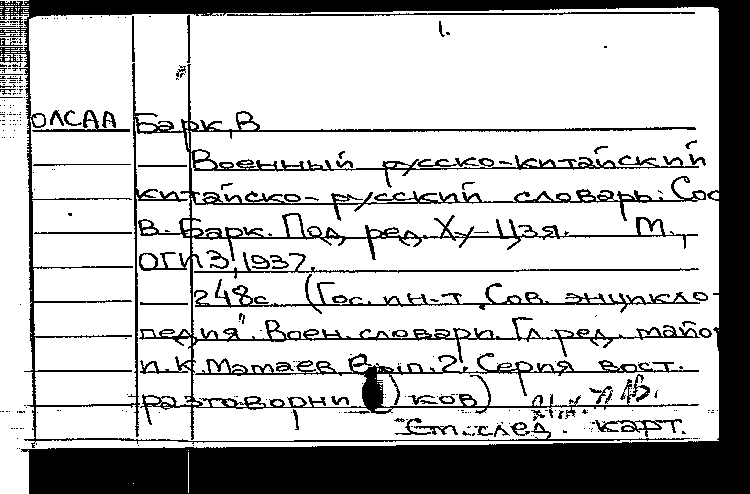 1.
ОЛСАА Барк, В
Военный русско-китайский
китайско-русский словарь: Сос
В. Барк. Под ред. Ху-Цзя. М.,
ОГИЗ, 1937.
248с. (Гос. ин-т „Сов. энцикло-
педия". Воен. словари. Гл. ред. майо
п. К. Матаев. Вып. 2. Серия вост.
разговорни ков)
См. след. карт.